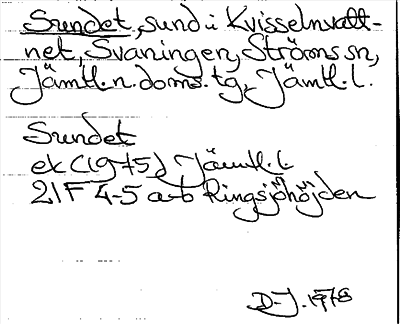 Sundet, sund i Kvisselnvatt-
net, Svaningen, Ströms sn,
Jämtl. n. doms. tg, Jämtl. l.
Sundet
ek (1975) Jämtl. l.
21F 4-5 a-b Ringsjöhöjden
D-J. 1978